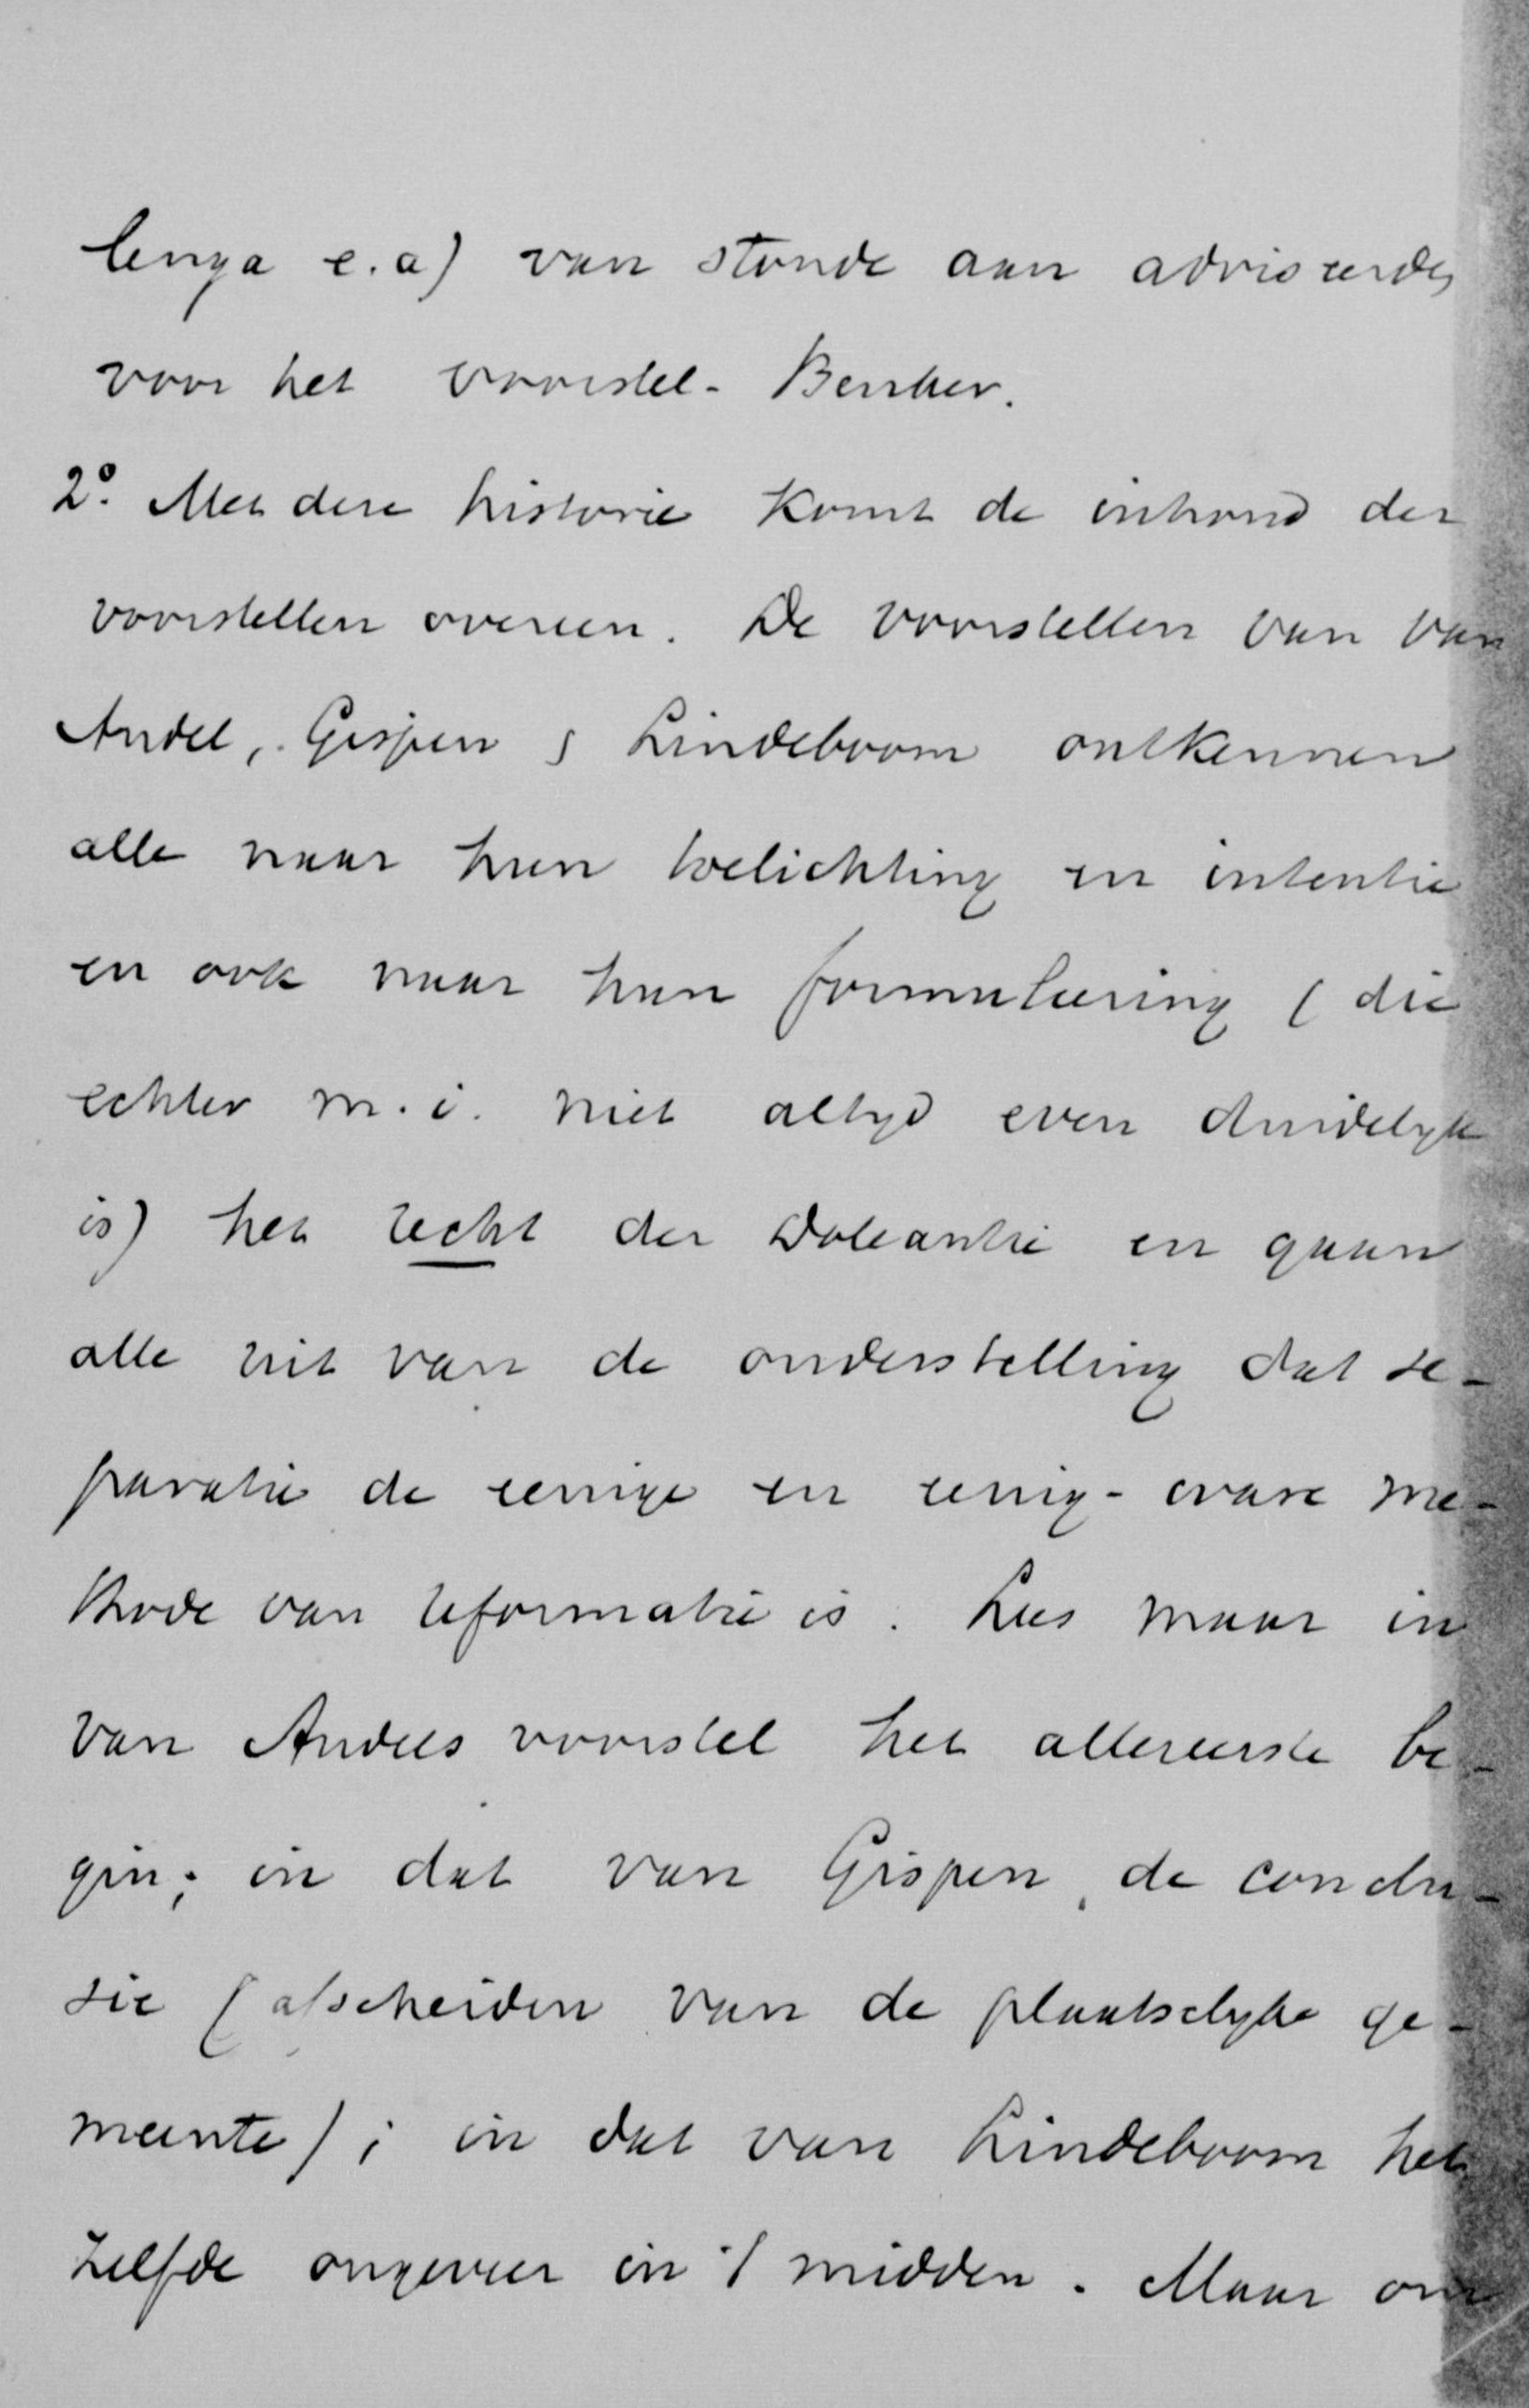 lenga e.a) van stonde aan adviseerden
voor het voorstel-Beuker.
2º. Met deze historie komt de inhoud der
voorstellen overeen. De voorstellen van van
Andel, Gispen & Lindeboom ontkennen
alle naar hun toelichting en intentie
en ook naar hun formuleering (die
echter m.i. niet altyd even duidelyk
is) het recht der Doleantie en gaan
alle uit van de onderstelling dat se-
paratie de eenige en eenig-ware me-
thode van reformatie is. Lees maar in
van Andels voorstel het allereerste be-
gin; in dat van Gispen, de conclu-
sie (afscheiden van de plaatselyke ge-
meente); in dat van Lindeboom het
zelfde ongeveer in 't midden. Maar om